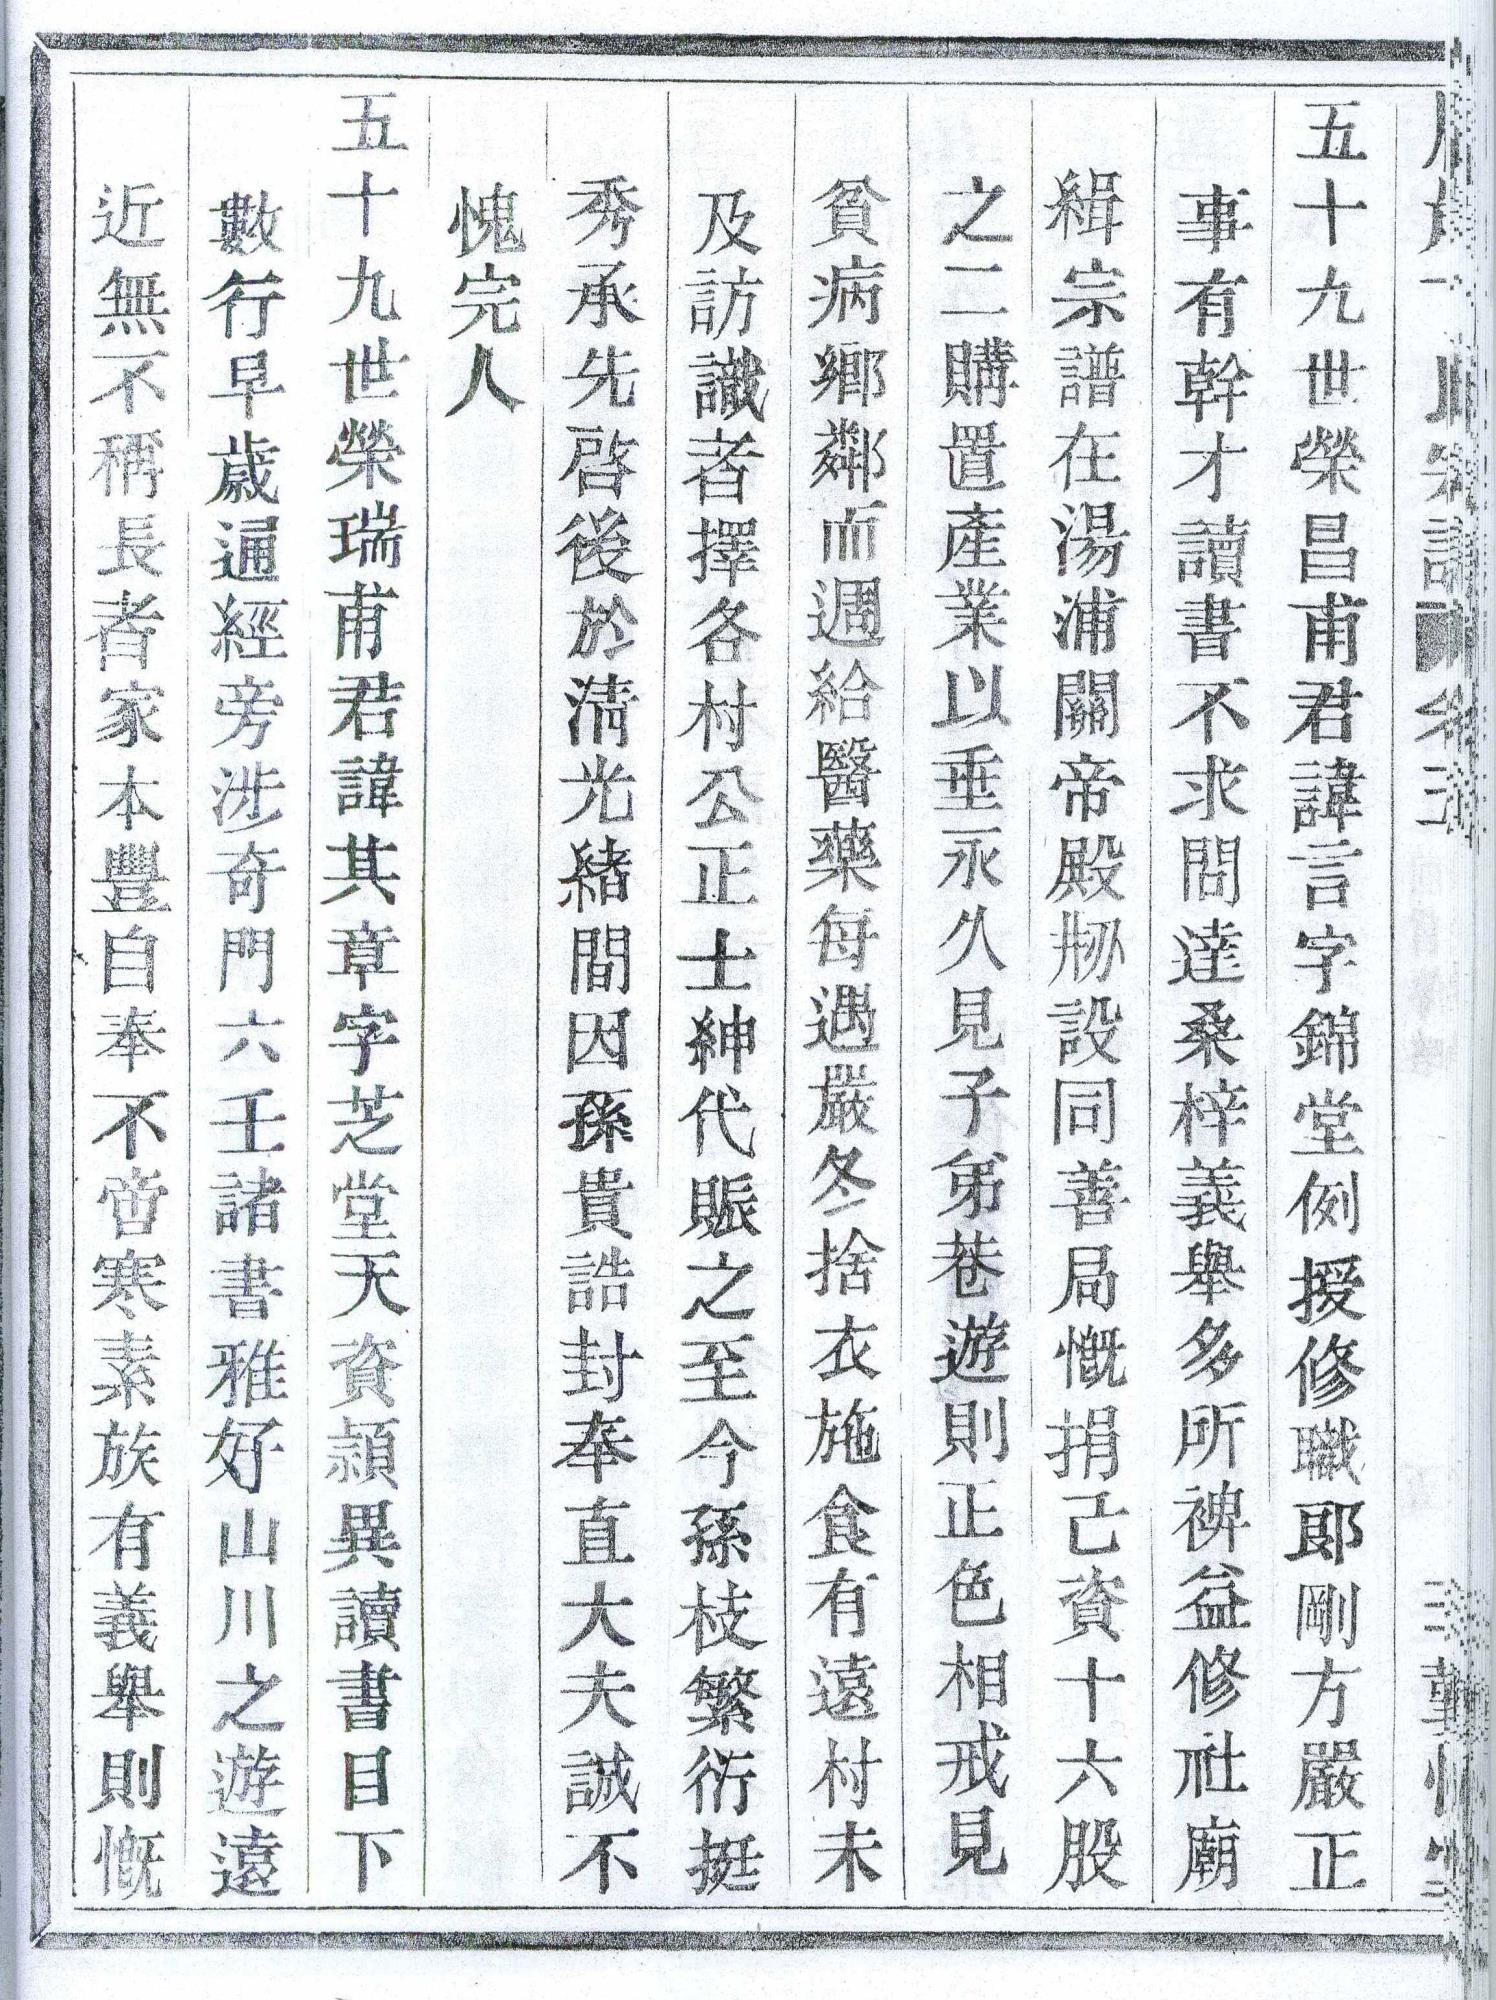 五十九世榮昌甫君諱言字錦堂例授修職郎剛方嚴正
事有幹才讀書不求聞達桑梓義舉多所裨益修社廟
緝宗譜在湯浦關帝殿刱設同善局慨捐己資十六股
之二購置產業以垂永久見子弟巷遊則正色相戒見
貧病鄉鄰而週給醫藥每遇嚴冬捨衣施食有遠村未
及訪識者擇各村公正士紳代賑之至今孫枝繁衍挺
秀承先啓後於淸光緒間因孫貴誥封奉直大夫誠不
愧完人
五十九世榮瑞甫君諱其章字芝堂天資穎異讀書目下
數行早歲通經旁涉奇門六壬諸書雅好山川之遊遠
近無不稱長者家本豐自奉不啻寒素族有義舉則慨